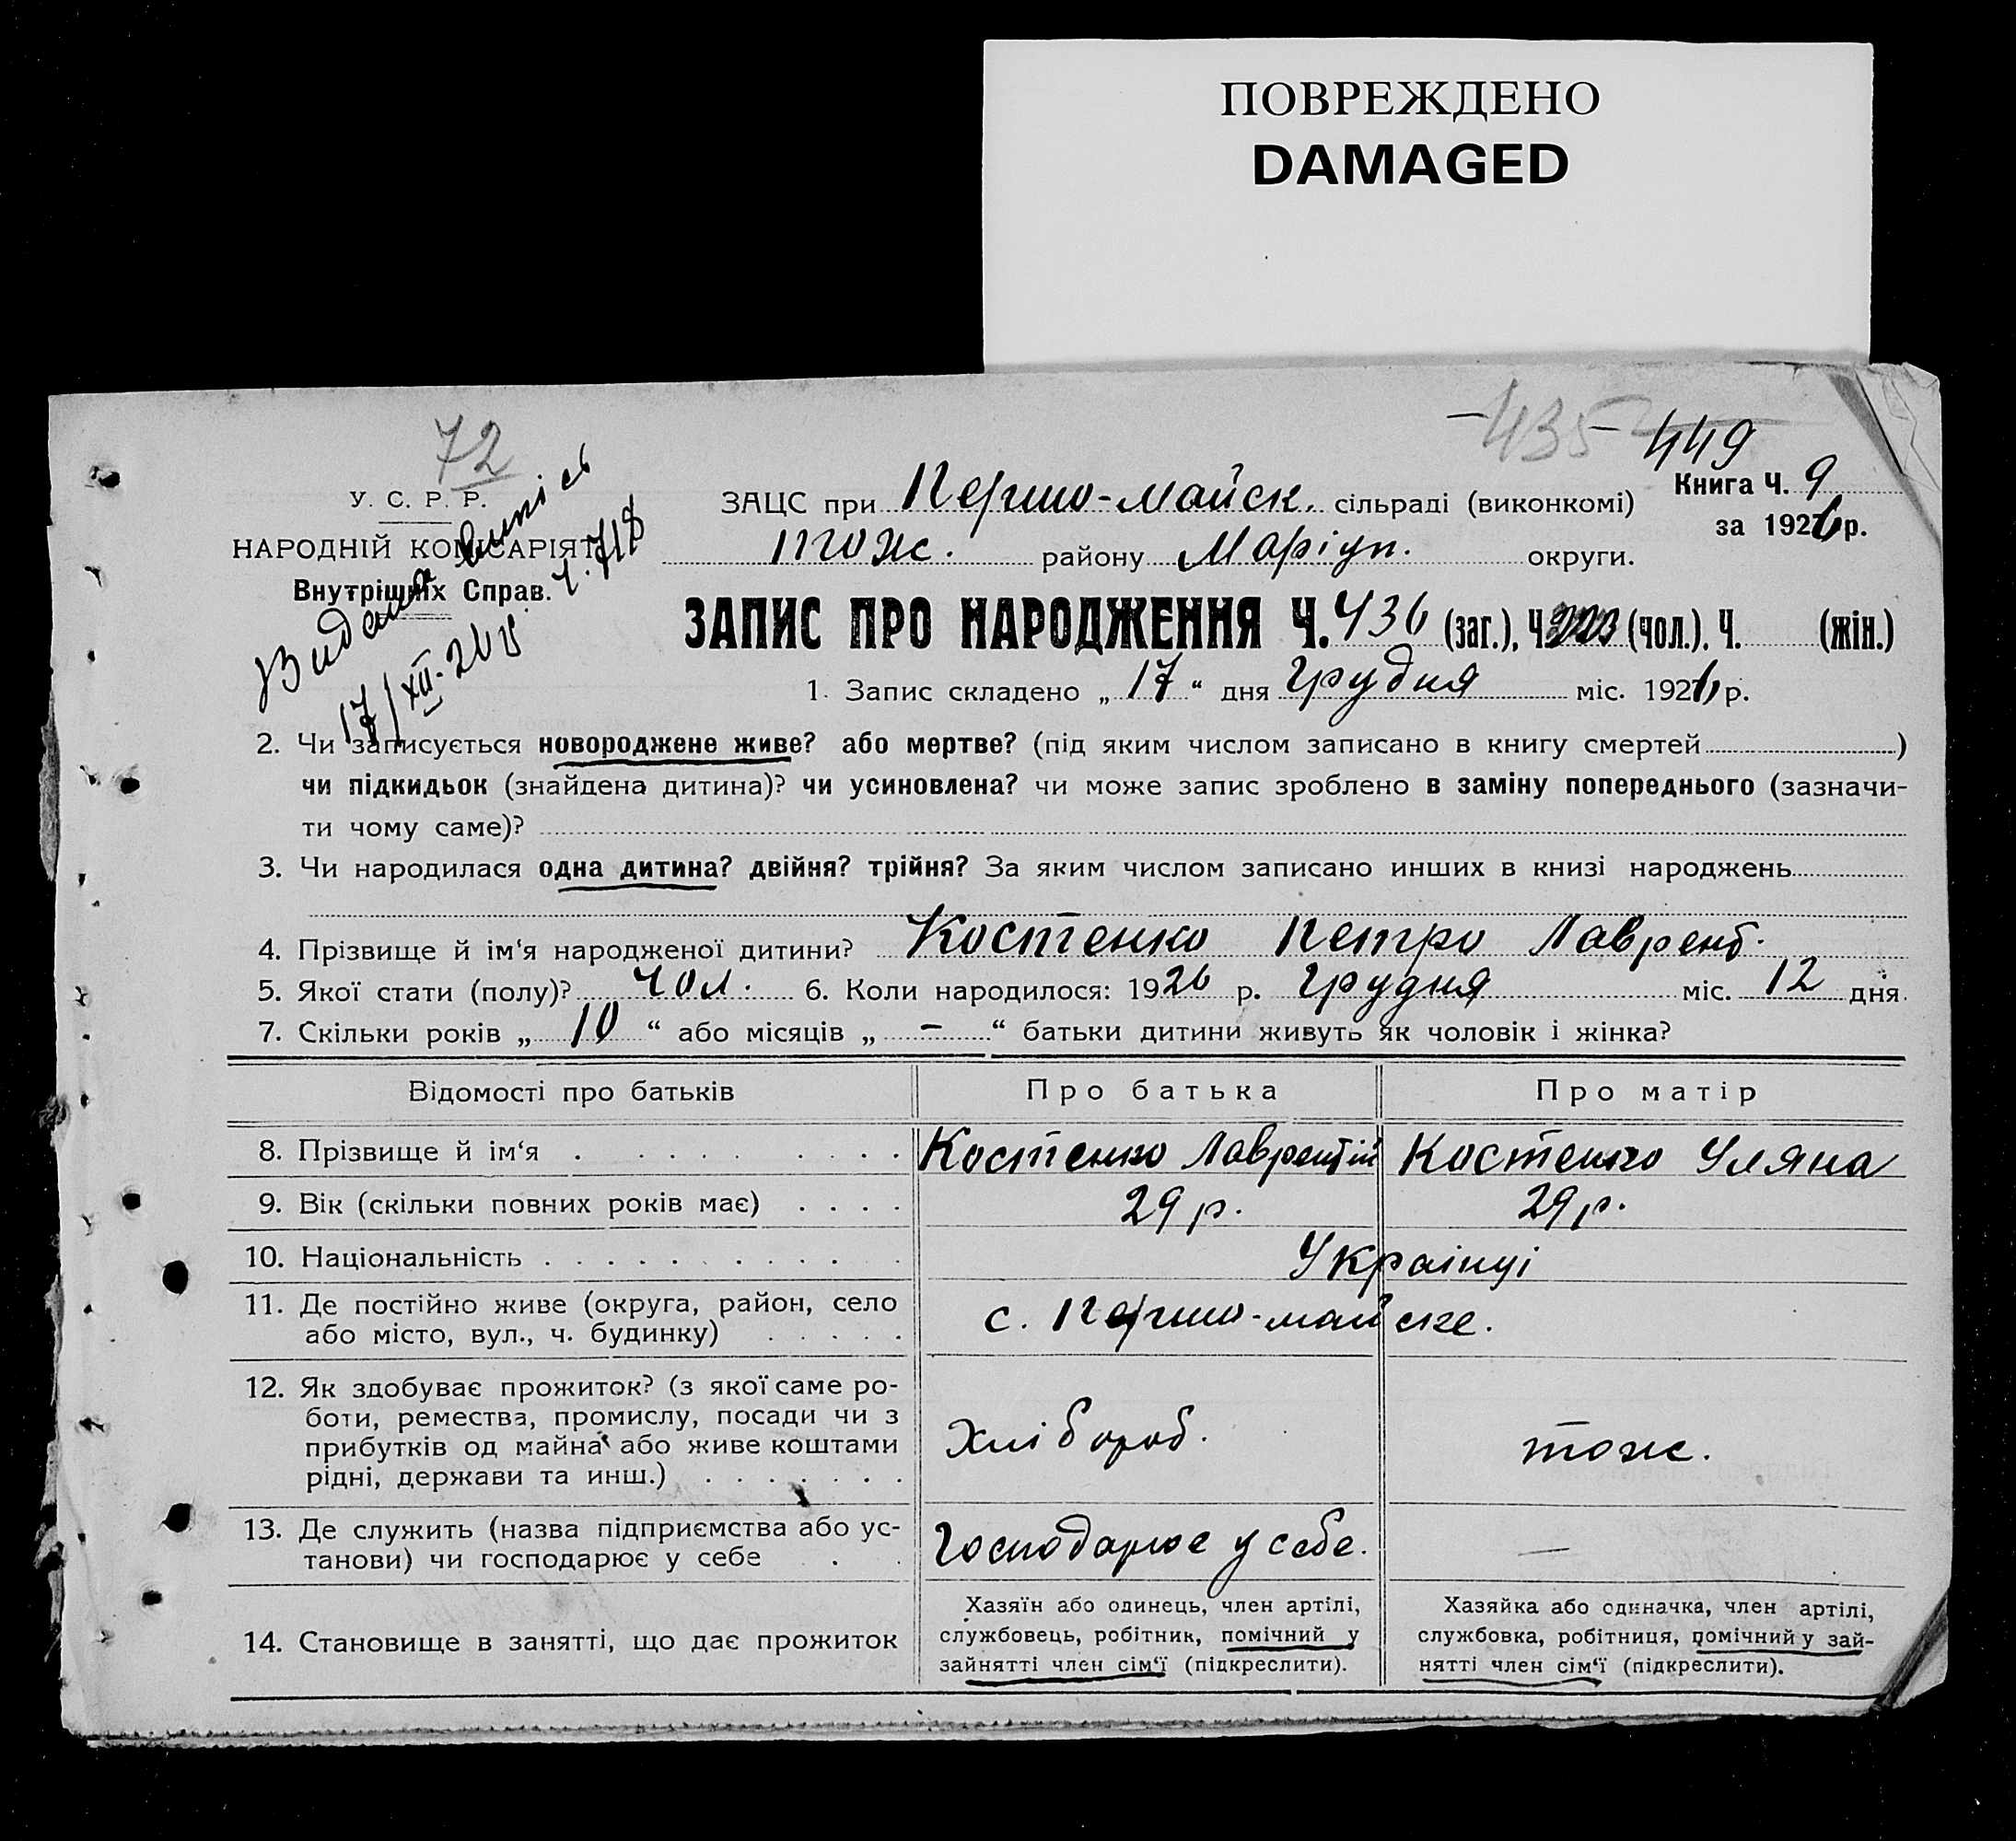 ПОВРЕЖДЕНО
DAMAGED
435
449
72
У. С. Р. Р.
НАРОДНІЙ КОМІСАРІЯТ
Внутрішніх Справ.
Видана випись
Ч. 718
17/XII-26 р.
ЗАЦС при Першо-майск. сільраді (виконкомі)
Книга Ч. 9
за 1926 р.
тож. району Маріуп. округи.
ЗАПИС ПРО НАРОДЖЕННЯ Ч. 436 (заг.), Ч. 223 (чол.), Ч. (жін.)
1. Запис складено „ 17 “ дня Грудня міс. 1926 р.
2. Чи записується новороджене живе? або мертве? (під яким числом записано в книгу смертей )
чи підкидьок (знайдена дитина)? чи усиновлена? чи може запис зроблено в заміну попереднього (зазначи-
ти чому саме)?
3. Чи народилася одна дитина? двійня? трійня? За яким числом записано инших в книзі народжень
4. Прізвище й ім‘я народженої дитини? Костенко Петро Лаврент.
5. Якої стати (полу)? чол. 6. Коли народилося: 1926 р. Грудня міс. 12 дня.
7. Скільки років „ 10 “ або місяців „ — “ батьки дитини живуть як чоловік і жінка?
Відомості про батьків Про батька Про матір
8. Прізвище й ім‘я . . . . . . . . . Костенко Лаврентій Костенко Уляна
9. Вік (скільки повних років має) . . . . 29 р. 29 р.
10. Національність . . . . . . . . . . Українці
11. Де постійно живе (округа, район, село
або місто, вул., ч. будинку) . . . . . с. Першо-майске.
12. Як здобуває прожиток? (з якої саме ро-
боти, ремества, промислу, посади чи з
прибутків од майна або живе коштами
рідні, держави та инш.) . . . . . . .
Хлібороб. тож.
13. Де служить (назва підприємства або ус-
танови) чи господарює у себе . .
Господарює у себе. —
14. Становище в занятті, що дає прожиток
Хазяїн або одинець, член артілі,
службовець, робітник, помічний у
зайнятті член сім‘ї (підкреслити).
Хазяйка або одиначка, член артілі,
службовка, робітниця, помічний у зай-
нятті член сім‘ї (підкреслити).